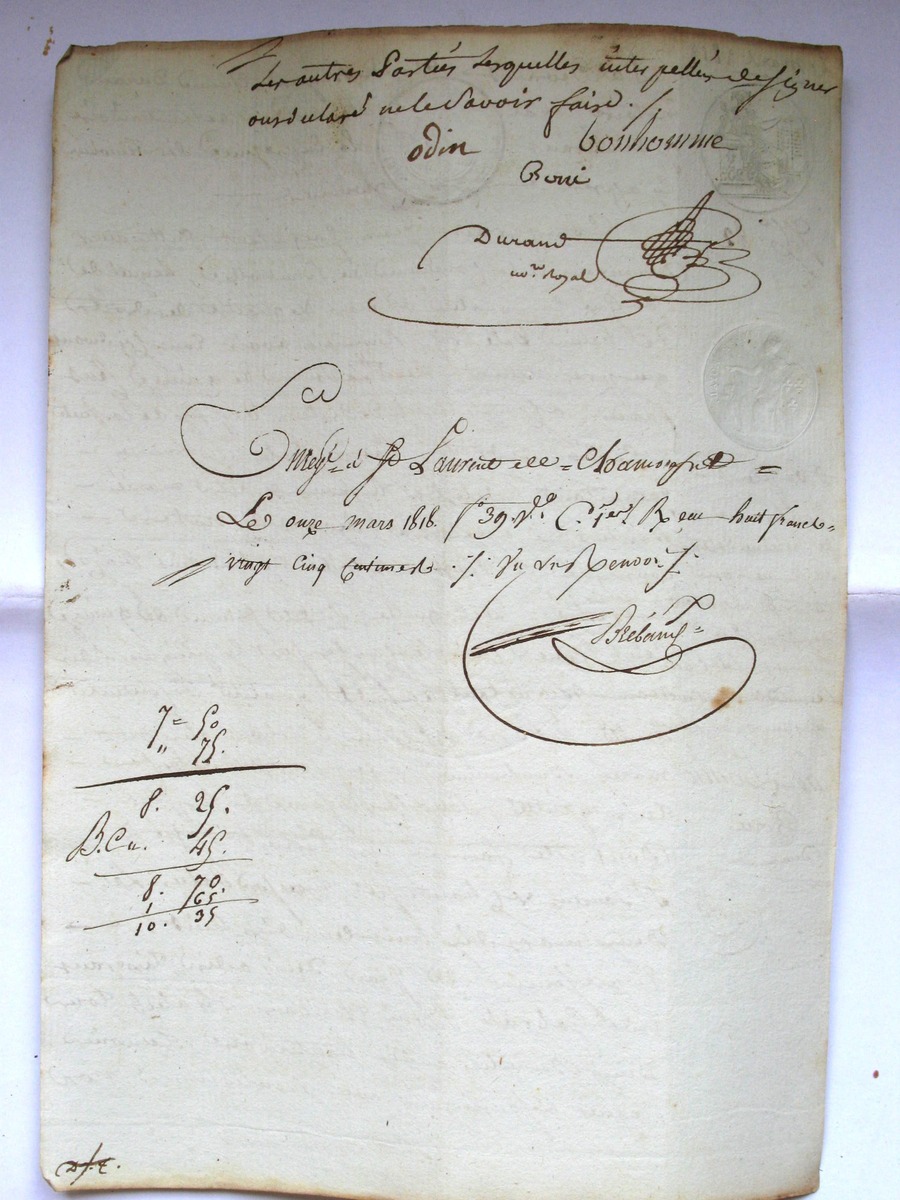 Les autres Parties lesquelles interpellés de signer
ont déclaré ne le Savoir faire. /.
odin bonhomme
Durand
no.re Royal
à St Laurent de = Chamousset =
Le onze mars 1818. fo 39. Vo. C. 1er R eau huit francs =
vingt Cinq Centimes ./. Vu un Renvoi /.
7 = 50
" 75.
8. 25.
B. Cu. 45.
8. 70.
1 65.
10. 35